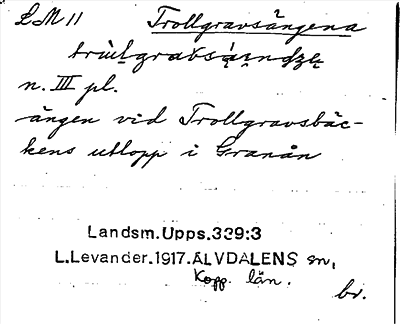 L M 11 Trollgravsängena
n. III pl.
ängen vid Trollgravsbäc-
kens utlopp i Granån
Landsm.Upps.339:3
L.Levander.1917.ÄLVDALENS sn,
Kopp. län.
br.